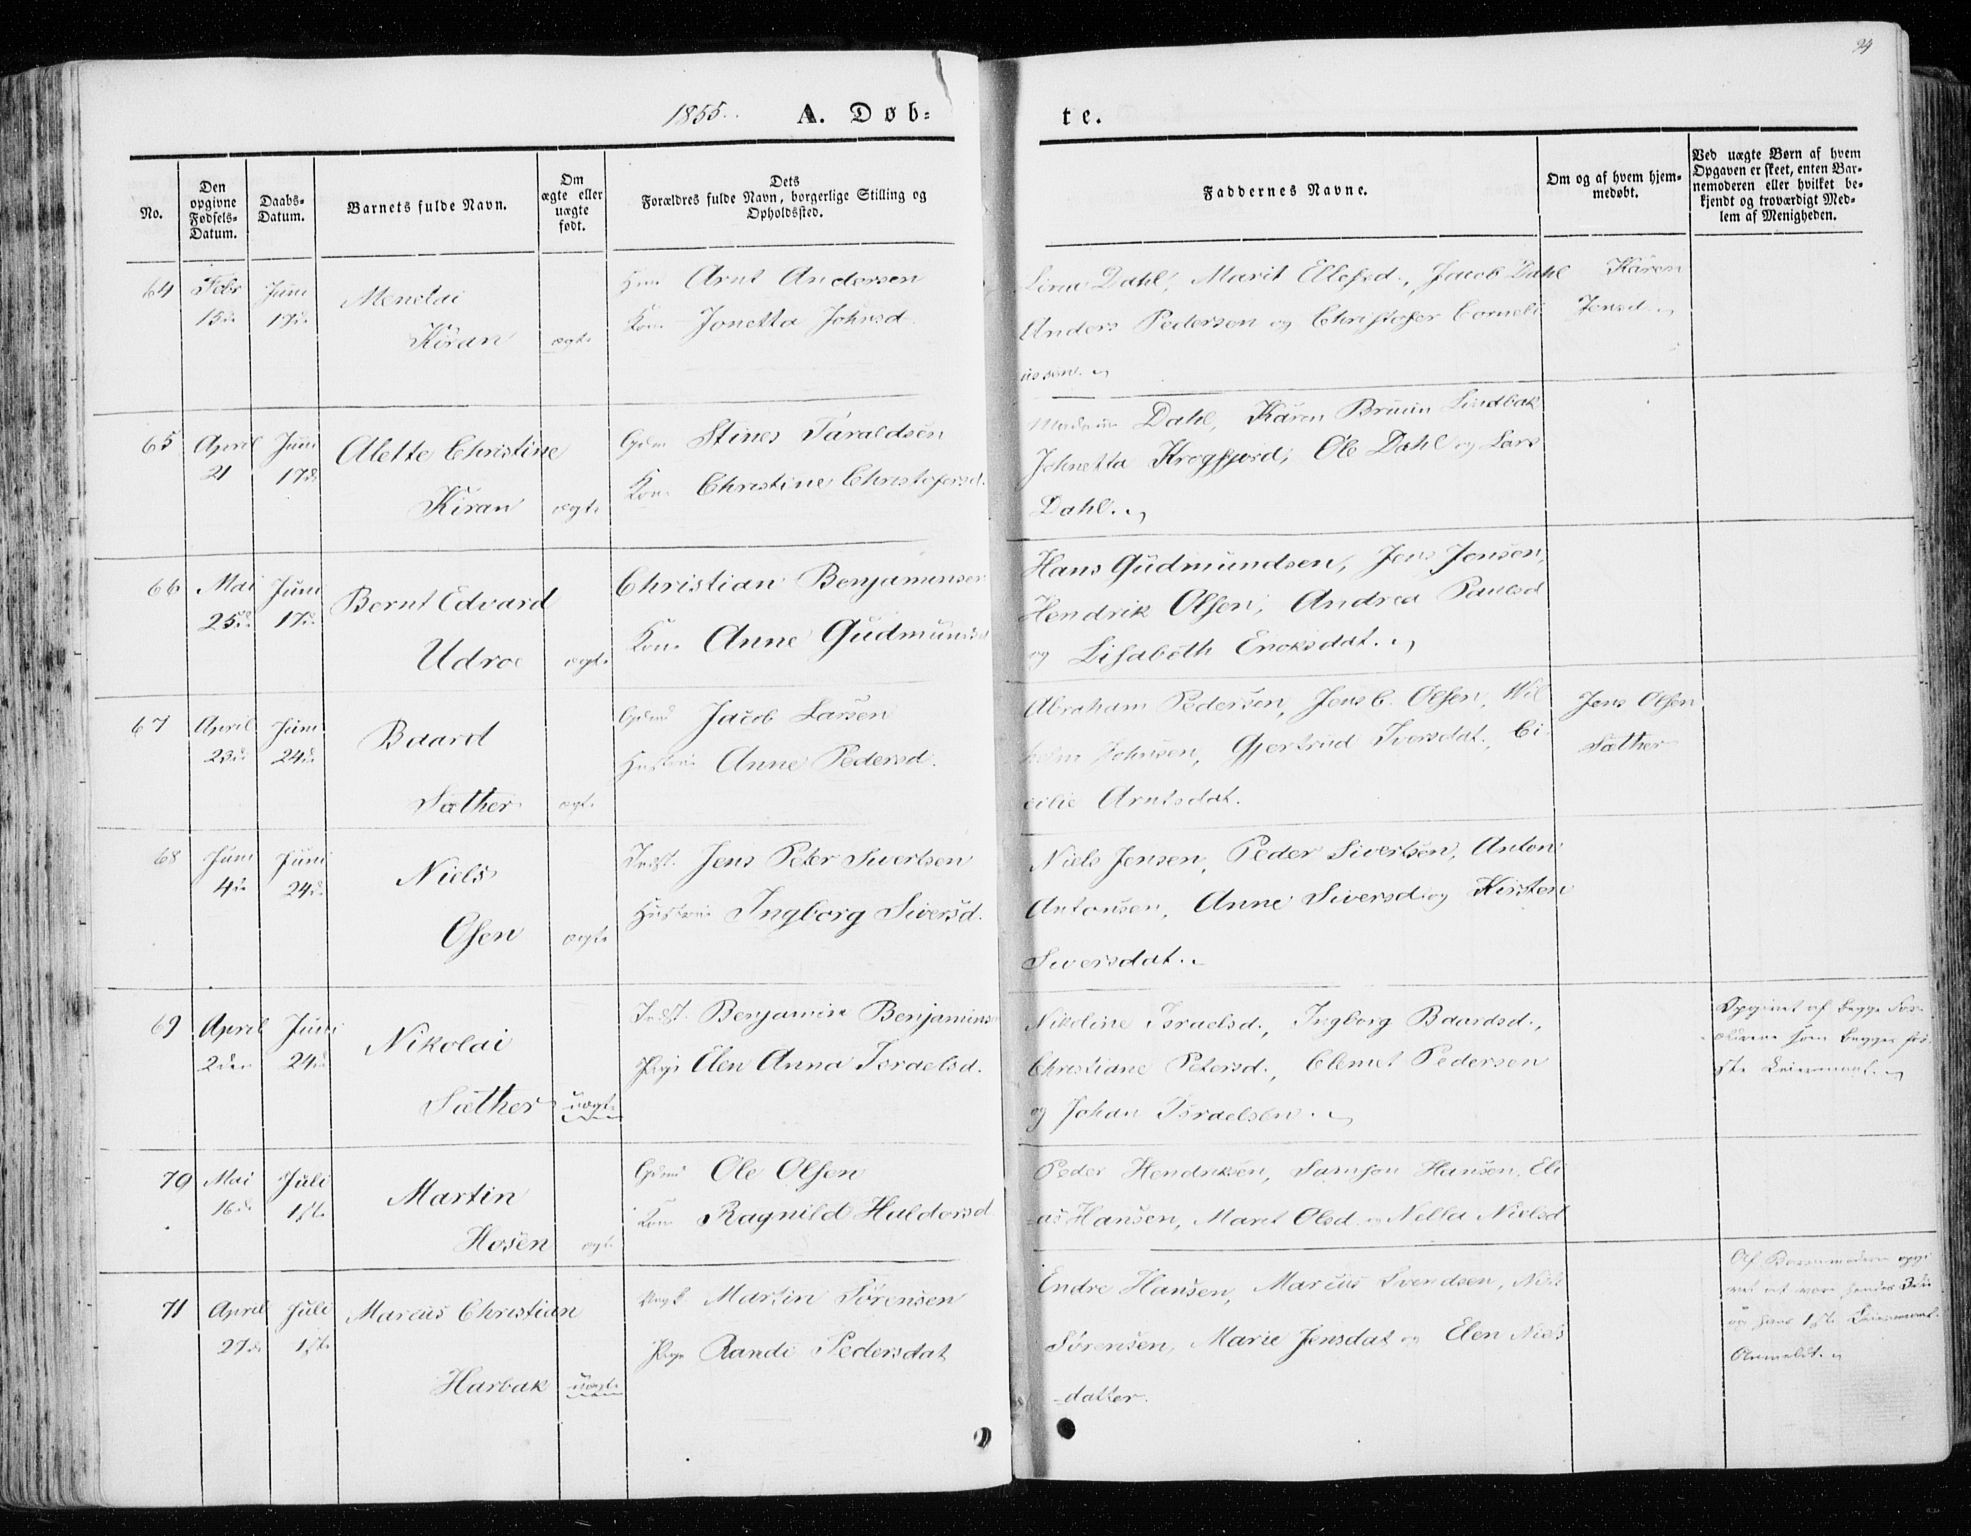 94
1855.
A. Døb=
te.
No.
Den opgivne Fødsels-Datum.
Daabs-Datum.
Barnets fulde Navn.
Om ægte eller uægte født.
Dets Forældres fulde Navn, borgerlige Stilling og Opholdssted.
Faddernes Navne.
Om og af hvem hjemmedøbt.
Ved uægte Børn af hvem Opgaven er skeet, enten Barnemoderen eller hvilket bekjendt og troværdigt Medlem af Menigheden.
64 Febr 15de Juni 17de
Menelai
Kiran ægte
Arnt Andersen
Kone Jonetta Johnsd.
Dahl, Marit Ellefsd., Jacob Dahl
Anders Pedersen og Christofer Corneli
ussen.
Karen
Jensd.
65 April 21 Juni 17de
Alette Christine
Kiran ægte
Gdm Stines Taraldsen
Kone Christine Christofersd.
Madam Dahl, Karen Lindbak
Johnetta Krogfjord, Ole Dahl og Lars
Dahl.
66 Mai 25de Juni 17de
Bernt Edvard
Udroe ægte
Christian Benjaminsen
Kone Anne Gudmunds
Hans Gudmundsen, Jens Jensen,
Hendrik Olsen, Andrea Paulsd
og Lisabeth Enoksdat.
67 April 23de Juni 24de
Baard
Sæther ægte
Gdmd Jacob Larsen
Hustrue Anne Pedersd.
Abraham Pedersen, Jens C. Olsen, Wil
helm Johnsen, Gjertrud Iversdat., Ci
cilie Arntsdat.
Jens Olsen
Sæther
68 Juni 4de Juni 24de
Niels
Osen ægte
Indst. Jens Peter Sivertsen
Hustrue Ingborg Siversd.
Niels Jensen, Peder Sivertsen, Anton
Antonsen, Anne Siversd og Kirsten
Siversdat.
69 April 2den Juni 24de
Nikolai
Sæther uægte
Indst. Benjamin Benjamins
Pige Elen Anna Israelsd.
Nikoline Israelsd., Ingborg Baardsd.,
Christiane Petersd., Clemet Pedersen
og Johan Israelsen.
Opgivet af begge For-
ældrene som begges før-
ste Leiermaal.
70 Mai 16de Juli 1ste
Martin
Hosen ægte
Gdmd Ole Olsen
Kone Ragnild Haldorsd
Peder Hendriksen, Samson Hansen, Eli
as Hansen, Marit Olsd. og Nella Nielsd
71 April 27de Juli 1ste
Marcus Christian
Harbak uægte
Ungk Martin Sørensen
Pige Randi Pedersdat
Endre Hansen, Marcus Svendsen, Niels
Sørensen, Marie Jensdat og Elen Niels
datter.
Af Barnemoderen opgi
vet at være hendes
og hans 1ste Leiermaal.
Anmeldt.